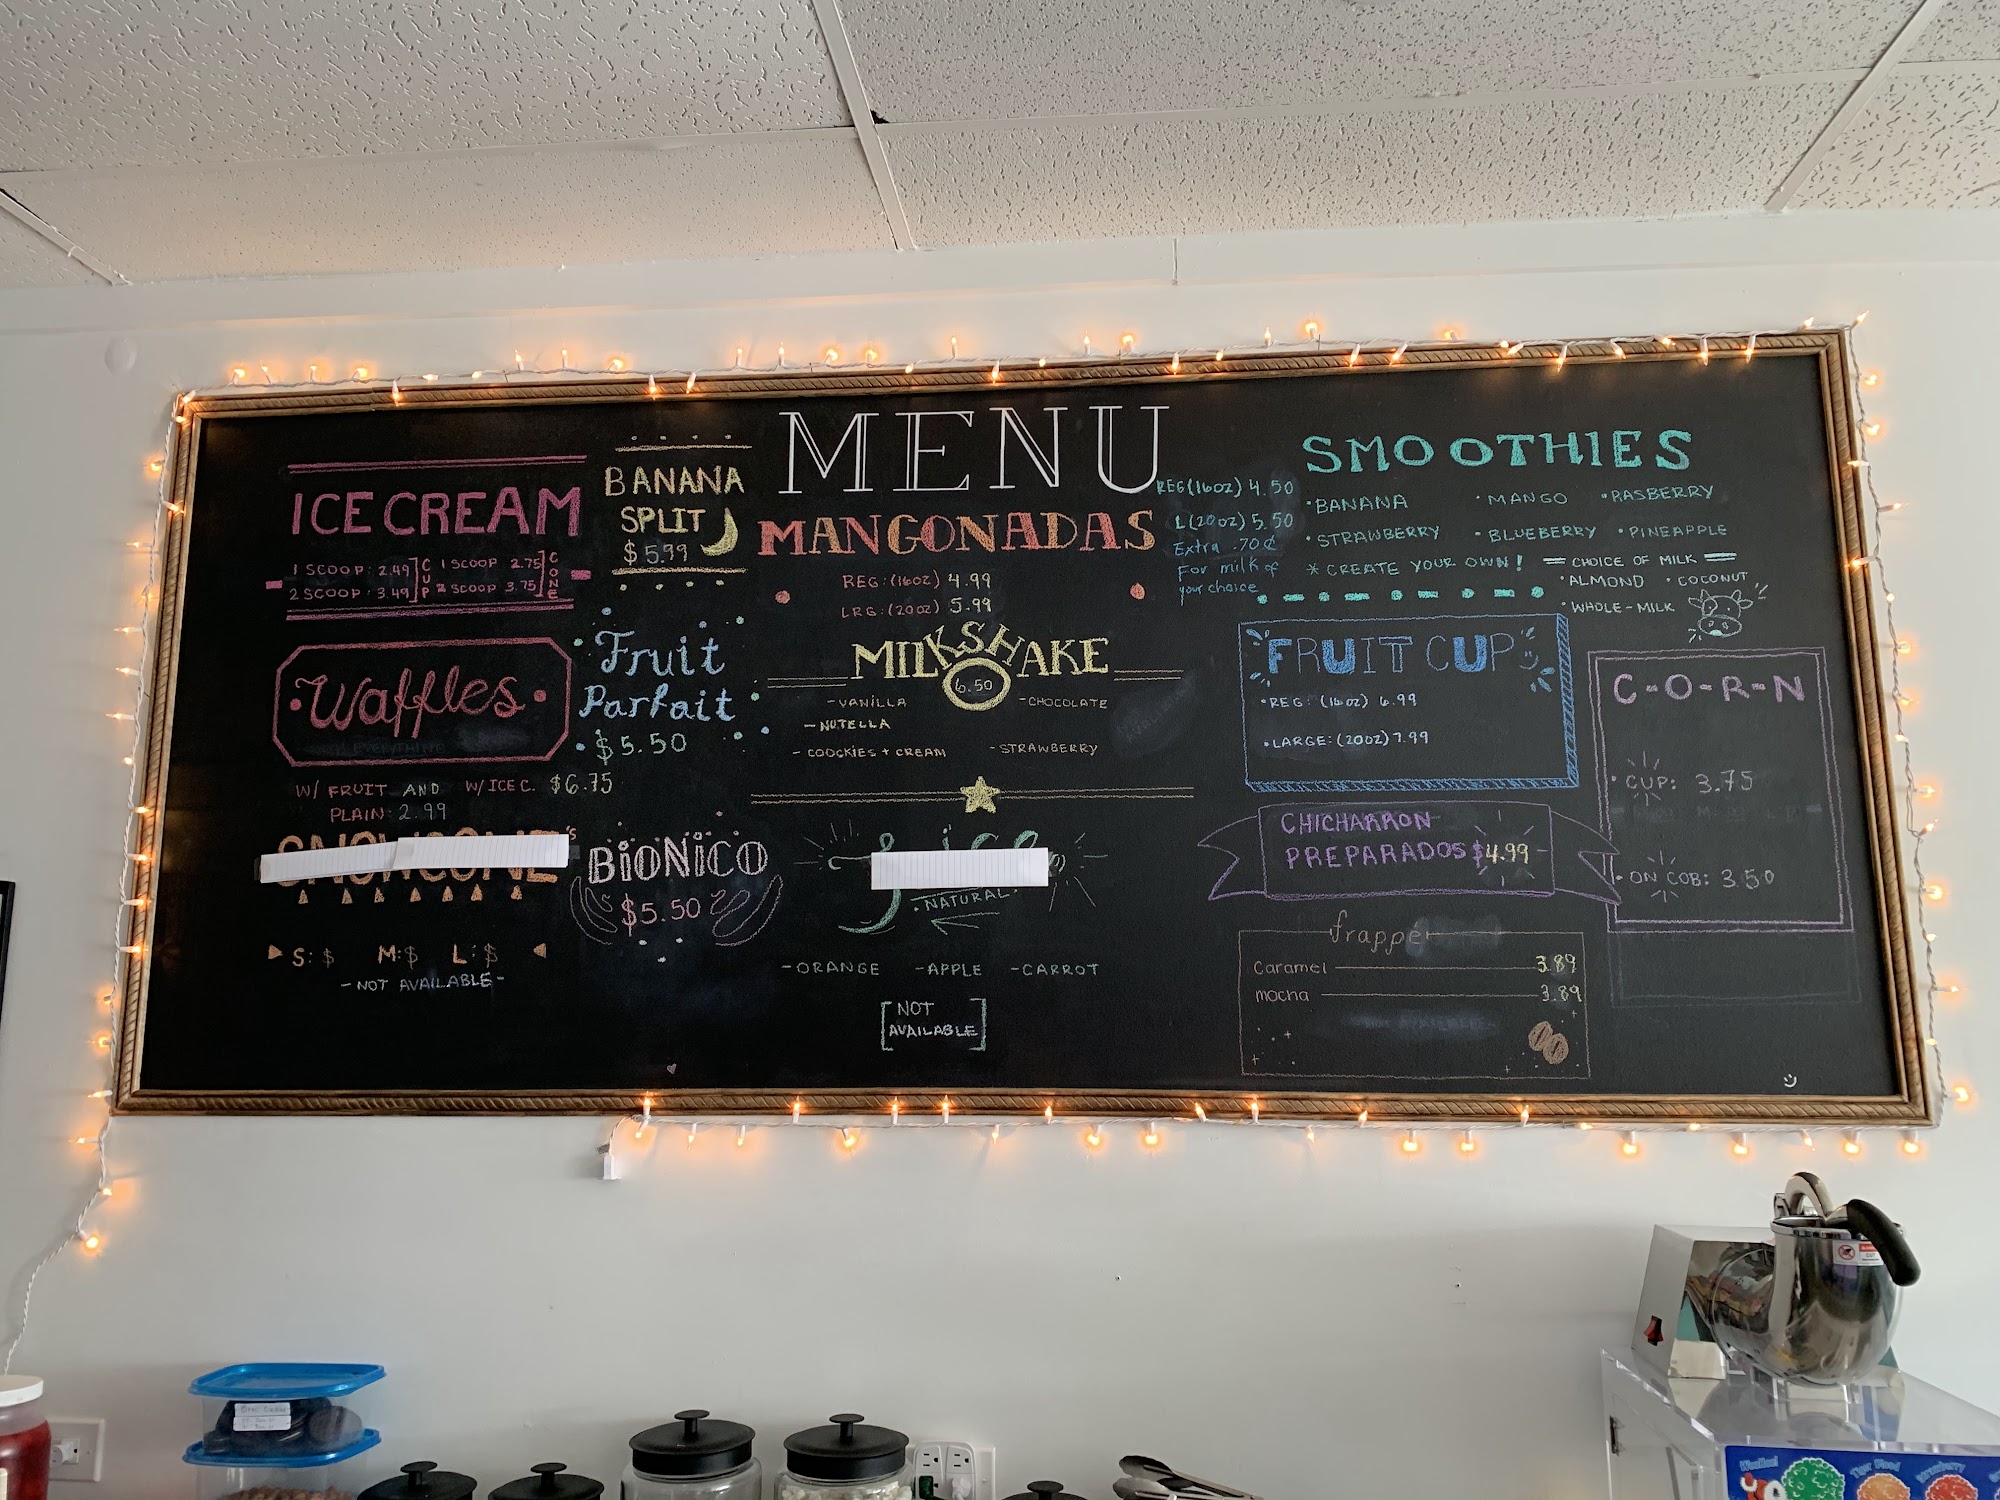 MENU
ICE CREAM
1 SCOOP: 2.49
2 SCOOP: 3.49
CUP
1 SCOOP 2.75
2 SCOOP 3.75
CONE
BANANA
SPLIT
$5.99
Waffles
W/ FRUIT AND W/ ICE C. $6.75
PLAIN: 2.99
Fruit
Parfait
$5.50
SNOWCONE's
S: $ M: $ L: $
- NOT AVAILABLE -
BiONICO
$5.50
MANGONADAS
REG: (16oz) 4.99
LRG: (20oz) 5.99
MILKSHAKE
6.50
- VANILLA - CHOCOLATE
- NUTELLA
- COOCKIES + CREAM - STRAWBERRY
• NATURAL •
- ORANGE - APPLE - CARROT
[NOT
AVAILABLE]
SMOOTHIES
REG(16oz) 4.50
L(20oz) 5.50
Extra .70¢
For milk of
your choice
• BANANA • MANGO • RASBERRY
• STRAWBERRY • BLUEBERRY • PINEAPPLE
* CREATE YOUR OWN!
= CHOICE OF MILK =
• ALMOND • COCONUT
• WHOLE-MILK
FRUIT CUP
• REG: (16oz) 6.99
• LARGE: (20oz) 7.99
CHICHARRON
PREPARADOS $4.99
frappé
Caramel 3.89
mocha 3.89
C-O-R-N
• CUP: 3.75
• ON COB: 3.50